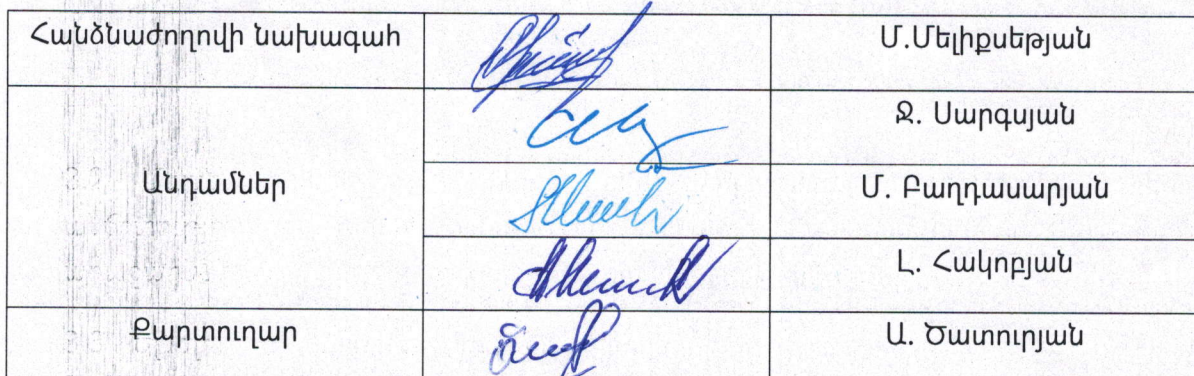 Հանձնաժողովի նախագահ
Մ.Մելիքսեթյան
Ջ. Սարգսյան
Անդամներ
Մ. Բաղդասարյան
Լ. Հակոբյան
Քարտուղար
Ա. Ծատուրյան